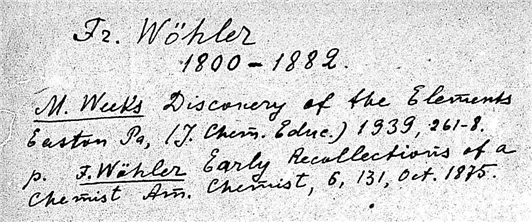 Fr. Wöhler
1800-1882.
M. Weeks Discovery of the Elements
Easton Pa, (J. Chem. Educ.) 1939, 261-8.
p. F. Wöhler Early Recollections of a
Chemist Am. Chemist, 6, 131, Oct. 1875.